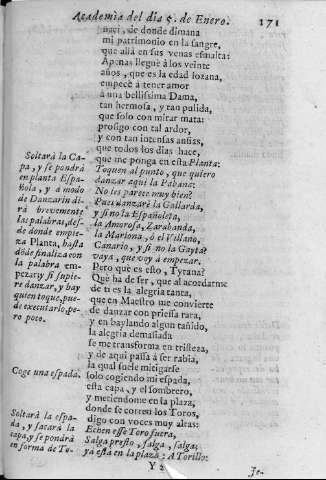 Academia del dia 5. de Enero. 171
naci, de donde dimana
mi patrimonio en la sangre,
que allá en sus venas esmalta:
Apenas lleguè à los veinte
años, que es la edad lozana,
empecè à tener amor
à una bellissima Dama,
tan hermosa, y tan pulida,
que solo con mirar mata:
prosigo con tal ardor,
y con tan intensas ansias,
que todos los dias hace,
que me ponga en esta Planta:
Toquen al punto, que quiero
danzar aqui la Pabana:
No les parece muy bien?
Pues danzarè la Gallarda,
y si no la Españoleta,
la Amorosa, Zarabanda,
la Mariona, ò el Villano,
Canario, y si no la Gayta?
vaya, que voy à empezar.
Pero què es esto, Tyrana?
Què ha de ser, que al acordarme
de ti es la alegria tanta,
que en Maestro me convierte
de danzar con priessa rara,
y en baylando algun tañido,
la alegria demasiada
se me transforma en tristeza,
y de aqui passa à ser rabia,
la qual suele mitigarse
solo cogiendo mi espada,
esta capa, y el sombrero,
y metiendome en la plaza,
donde se corren los Toros,
digo con voces muy altas:
Echen esse Toro fuera,
Salga presto, salga, salga;
ya està en la plaza: A Torillo:
Soltarà la Ca-
pa, y se pondrà
en planta Espa-
ñola, y a modo
de Danzarin di-
rà brevemente
las palabras, des-
de donde empie-
za Planta, hasta
dòde finaliza con
la palabra em-
pezar: y si supie-
re danzar, y hay
quien toque, pue-
de executarlo, pe-
ro poco.
Coge una espada.
Soltarà la espa-
da, y sacarà la
capa, y se pondrà
en forma de To-
Y 2
Je-